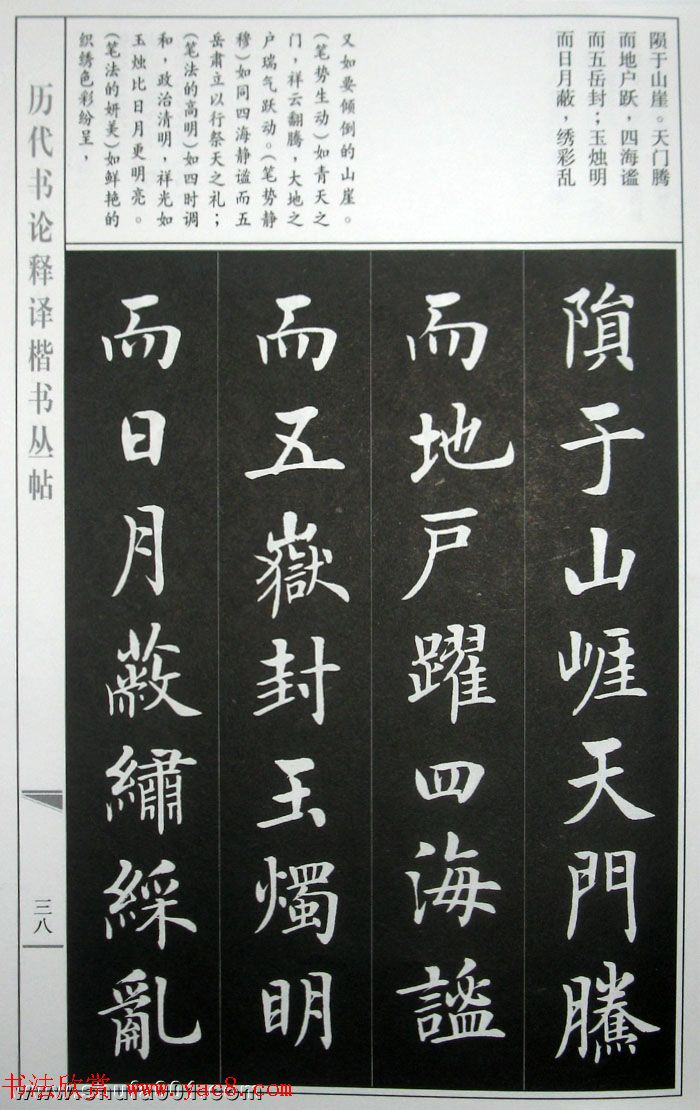 陨于山崖。天门腾
而地户跃，四海谧
而五岳封；玉烛明
而日月蔽，绣彩乱
又如要倾倒的山崖。
(笔势生动)如青天之
门，祥云翻腾，大地之
户瑞气跃动。(笔势静
穆)如同四海静谧而五
岳肃立以行祭天之礼；
(笔法的高明)如四时调
和，政治清明，祥光如
玉烛比日月更明亮。
(笔法的妍美)如鲜艳的
织绣色彩纷呈，
隕于山崕天門騰
而地户躍四海謐
而五嶽封玉燭明
而日月蔽繡綵亂
历代书论释译楷书丛帖
三八
书法欣赏 www.yac8.com